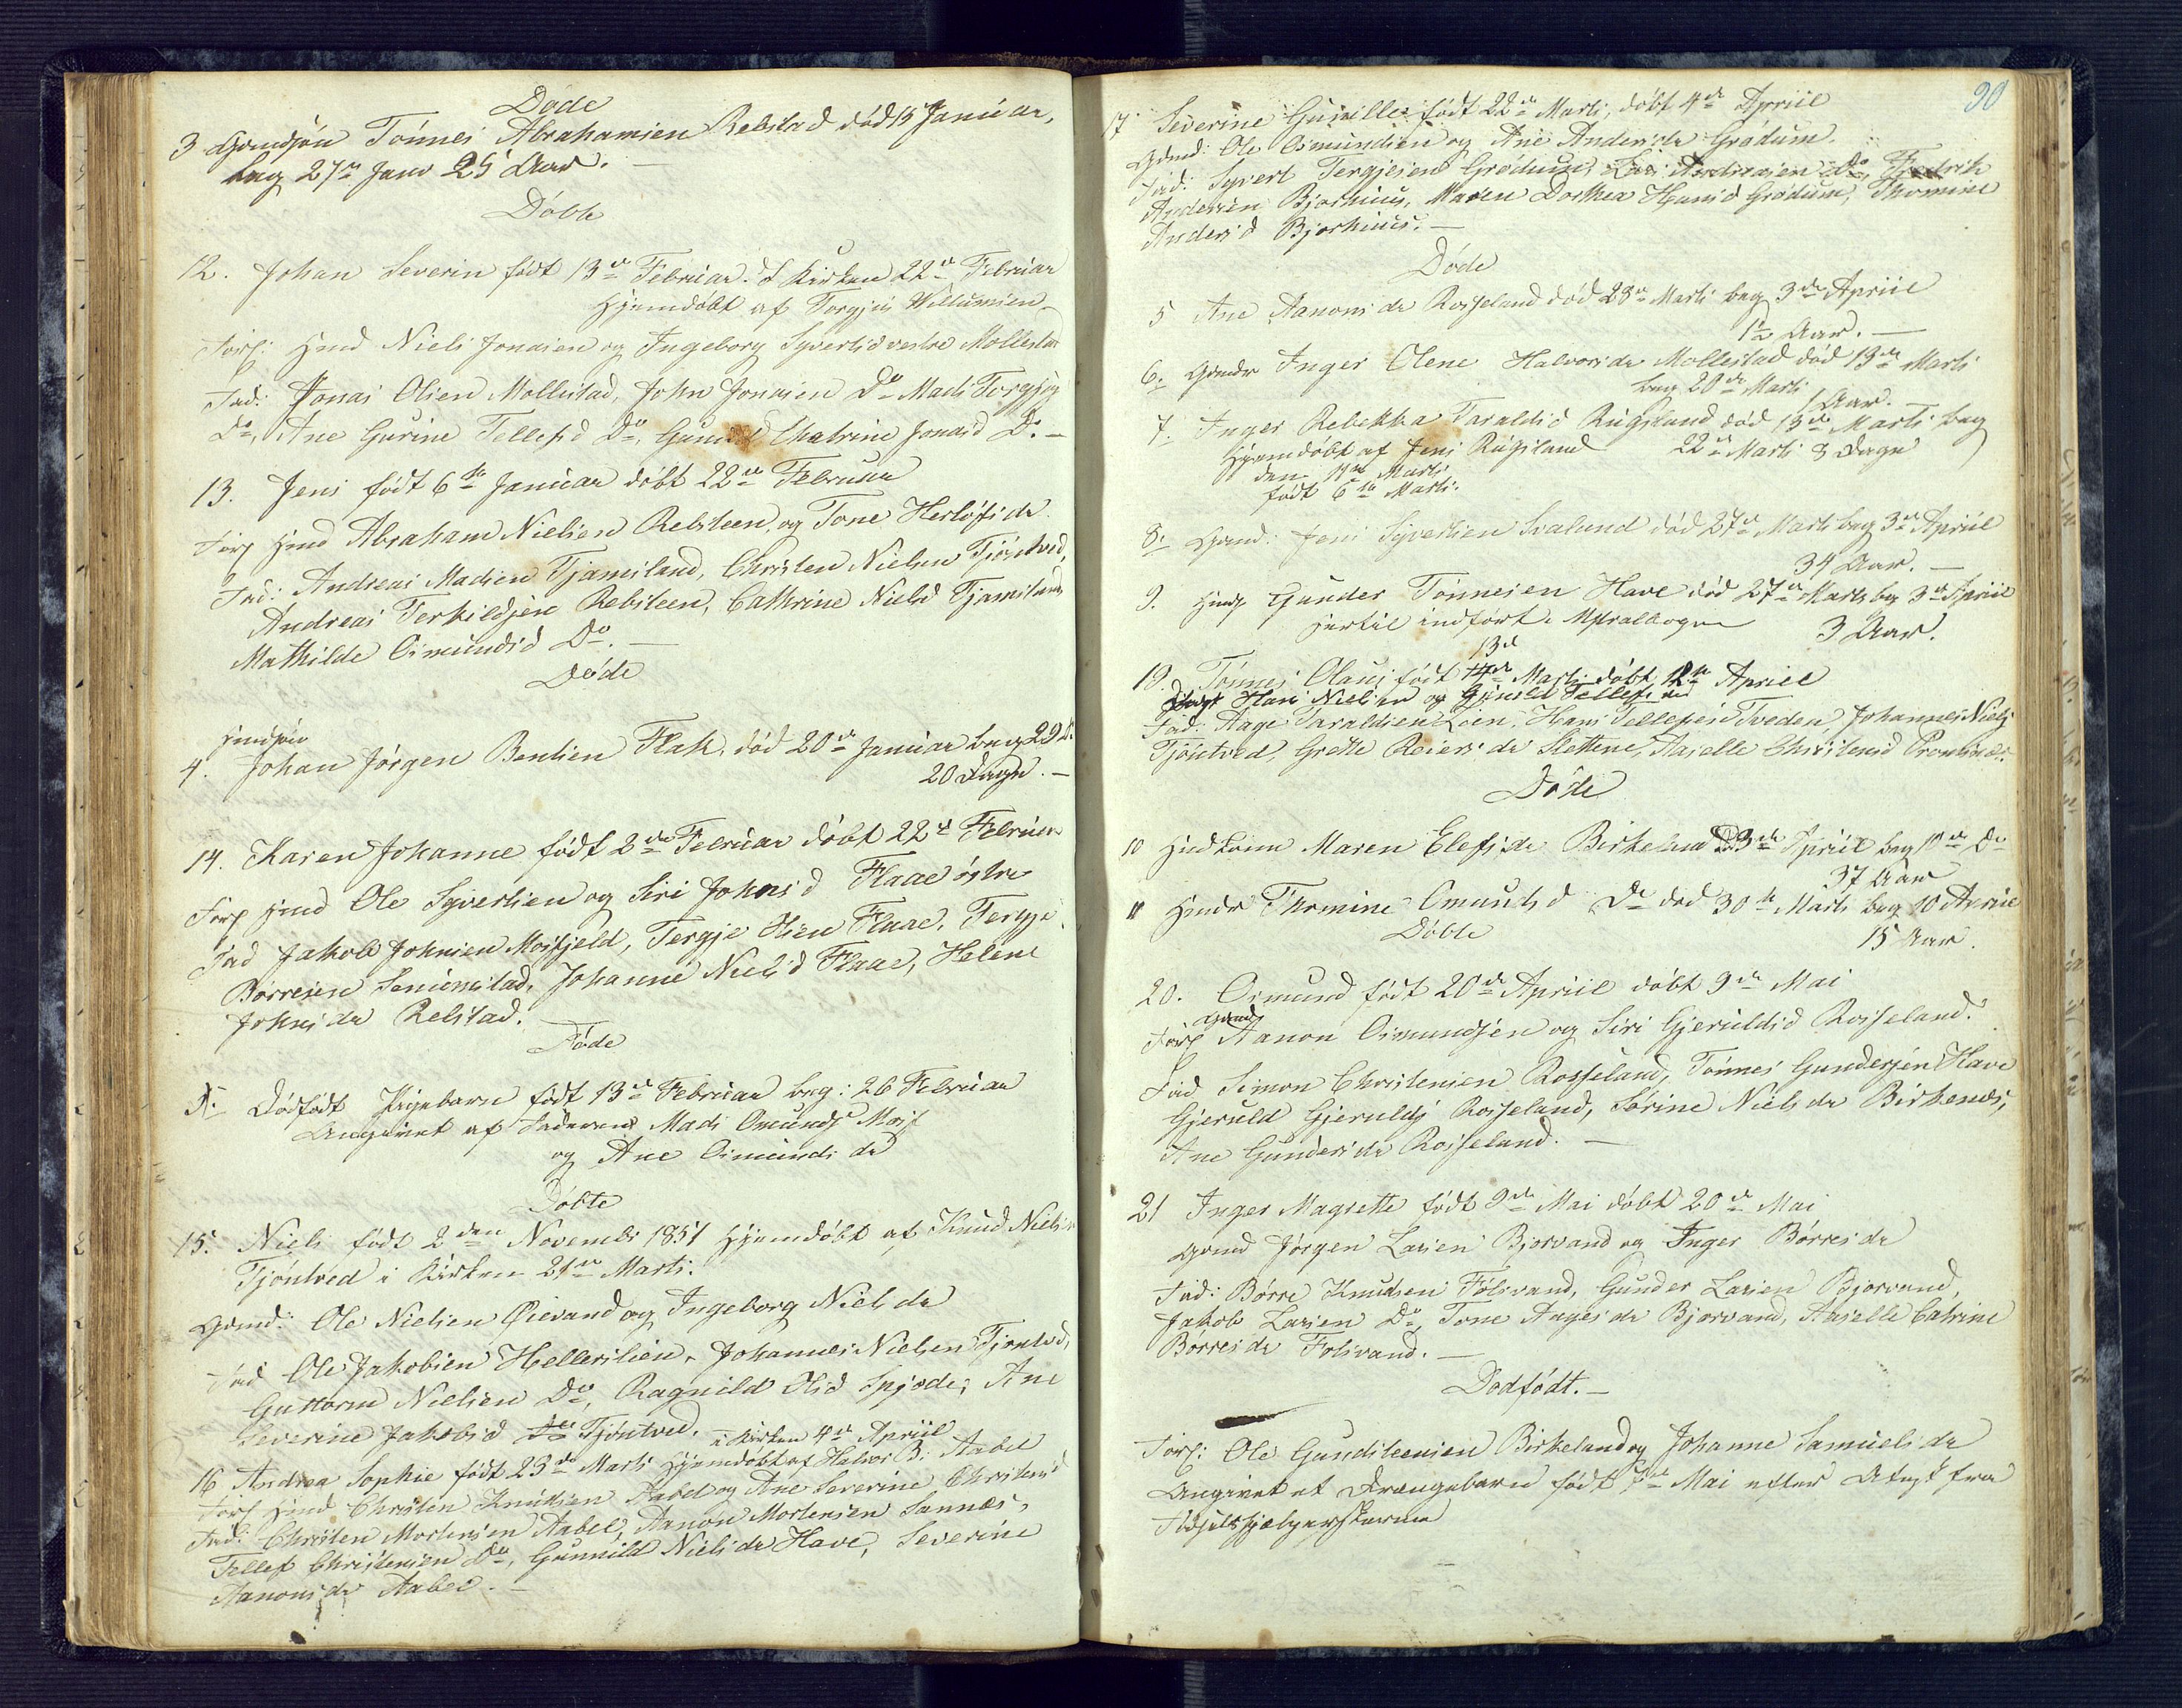 Døde
3 Gmdsøn Tønnes Abrahamsen Rebstad død 13 Januar,
beg 27de Janr 25 Aar. —
Døbte
12. Johan Severin født 13de Februar. I Kirken 22de Februar
Hjemdøbt af Torgjus Willumsen
Forf: Hmd Niels Jonasen og Ingeborg Syversd vestre Mollestad
Fad: Jonas Olsen Mollestad, John Jonasen Do Mads Torgjus
Do, Ane Gurine Tellefsd Do, Gunild Chatrine Jonasd Do. —
13. Jens født 6te Januar døbt 22de Februar
Forf Hmd Abraham Nielsen Rebsteen og Tone Herlofsdr
Fad: Andreas Madsen Tjamsland, Christen Nielsen Tjøntved,
Andreas Terkildsen Rebsteen, Cathrine Nielsd Tjamsland
Mathilde Osmundsd Do. —
Døde
Hmdsøn
4. Johan Jørgen Bentsen Flak, død 20de Januar beg 29 d:
20 Dage. —
14. Karen Johanne født 2den Februar døbt 22de Februar
Forf Hmd Ole Syvertsen og Siri Johnsd Flaae østre
Fad Jakob Johnsen Mosfjeld, Tergje Olsen Flaae, Tergje
Børresen Senumstad, Johanne Nielsd Flaae, Helene
Johnsdr Rebstad.
Føde
Dødfødt Pigebarn født 13de Februar beg: 26 Februar
Angivet af Faderen Mads Omunds Mos
og Ane Osmundsdr
Døbte
15. Niels født 2den Novembr 1851 Hjemdøbt af Knud Nielsen
Tjøntved i Kirken 21de Marts.
Gmd: Ole Nielsen Øievand og Ingeborg Nielsdr
Fad Ole Jakobsen Hellerslien, Johannes Nielsen Tjøntved,
Guttorm Nielsen Do, Ragnild Olsd Spjode, Ane
Severine Jakobsd Do Tjøntved.
i Kirken 4de Apriil
16 Andrea Sophie født 23de Marts Hjemdøbt af Halvor B. Aabel
Forf Hmd Christen Knudsen Aabel og Ane Severine Christensd
Fad: Christen Mortensen Aabel, Aanon Mortensen Sannæs,
Tellef Christensen Do, Gunnild Nielsdr Have, Severine
Aanonsdr Aabel. —
90
17 Severine Gunille født 22de Marts, døbt 4de Apriil
Gdmd: Ole Osmundsen og Ane Andersdr Grødum.
Fad: Syvert Tergjesen Grødum, Andreasen Do, Fredrik
Andersen Bjorhuus, Maren Dorthea Hansd Grødum, Thomine
Andersd Bjorhuus. —
Døde
5 Ane Aanonsdr Rosseland død 28de Marts beg 3die Apriil
1½ Aar. —
6. Gmdr Inger Olene Halvorsdr Mollestad død 13de Marts
beg 20de Marts 1 Aar.
7. Inger Rebekka Taraldsd Rugsland død 13de Marts beg
Hjemdøbt af Jens Rugsland 22de Marts 8 Dage
den 11te Marts
født 6te Marts.
8. Gmd: Jens Syvertsen Svaland død 27de Marts beg 3de Apriil
34 Aar. —
9. Hmds Gunder Tønnesen Have død 27de Marts beg 3de Apriil
hertil indført i 3 Aar.
13de
19. Tønnes Olaus født 14de Marts døbt 12te Apriil
Hans Nielsen og Gjeruld Tellefsd
Fad: Aage Taraldsen Lien, Hans Tellefsen Tveden, Johannes Niels
Tjøntved, Grethe Reiersdr Slettene, Aaselle Christensd
Døde
10 Hmdkone Maren Elefsdr Birkeland 3de Apriil beg 10de Do
37 Aar
11 Hmdr Thomine Omundsd Do død 30te Marts beg 10 Apriil
Døbte 15 Aar.
20. Osmund født 20de Apriil døbt 9de Mai
Gmd
Forf Aanon Osmundsen og Siri Gjeruldsd Rosseland.
Fad Simon Christensen Rosseland, Tønnes Gundersen Have
Gjeruld Gjerulds Rosseland, Sørine Nielsdr Birkenæs,
Ane Gundersdr Rosseland. —
21 Inger Magrette født 9de Mai døbt 20de Mai
Gdmd Jørgen Larsen Bjorvand og Inger Børresdr
Fad: Børre Knudsen Følsvand, Gunder Larsen Bjorvand,
Jakob Larsen Do, Tone Aagesdr Bjorvand, Aaselle Catrine
Børresdr Folsvand. —
Dødfødt. —
Forf: Ole Gundsteensen Birkeland og Johanne Samuelsdr
Angivet et Drængebarn født 7de Mai efter Attest fra
Fødselshjælpersken